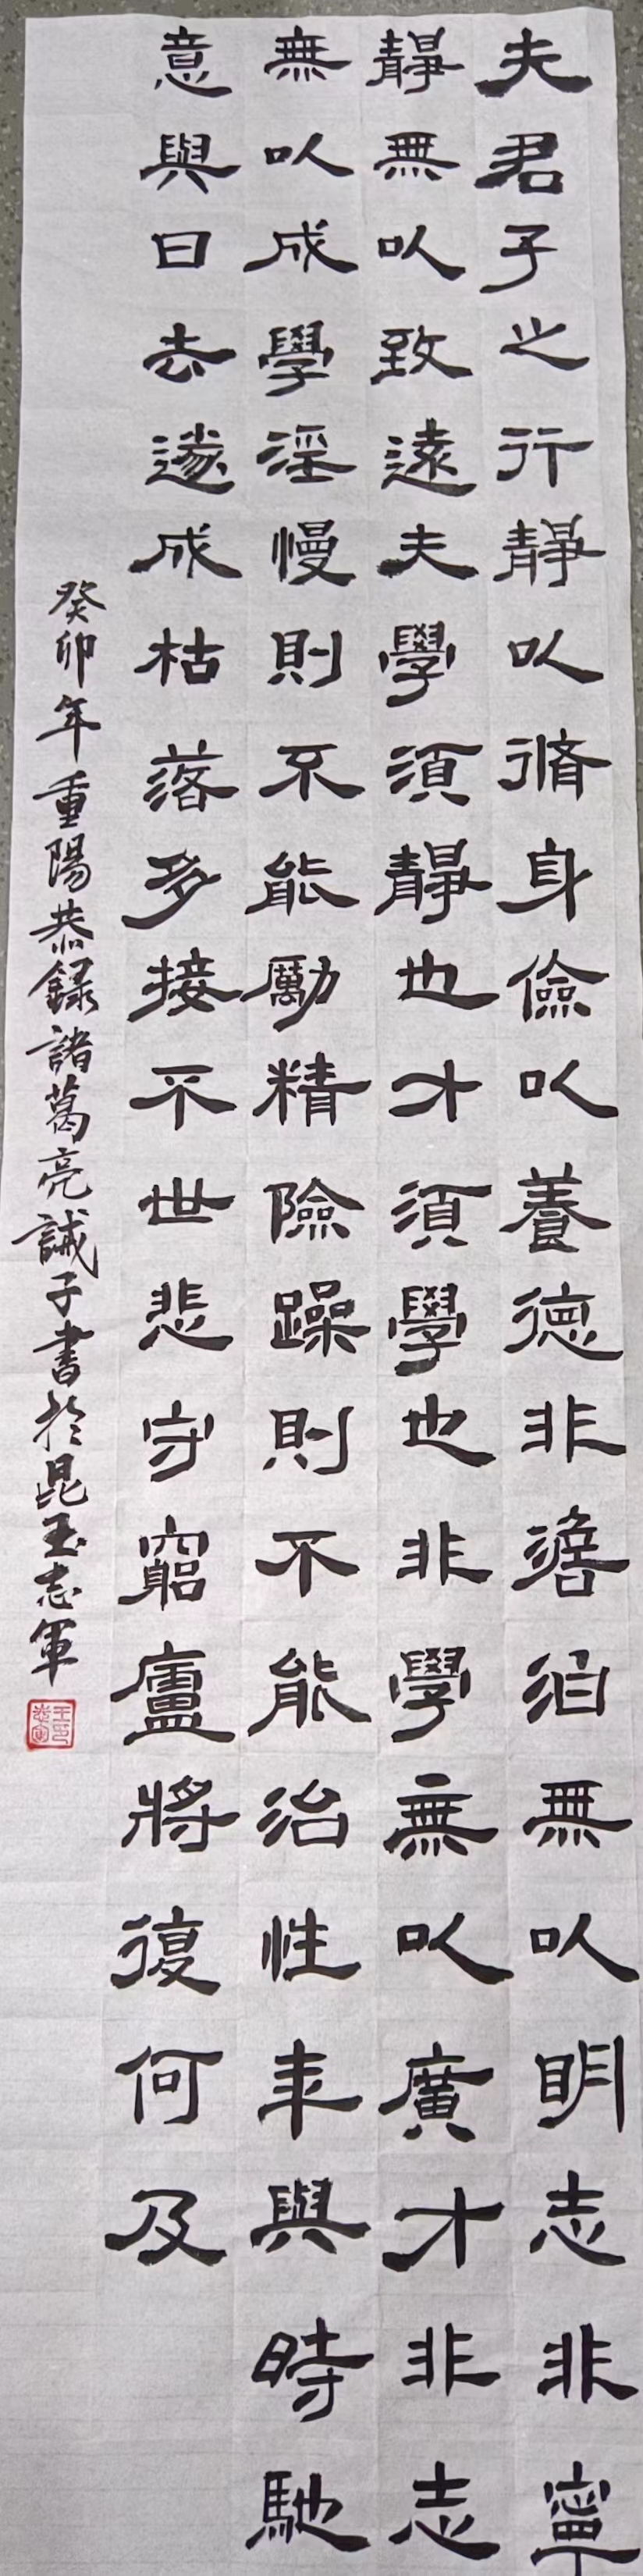 夫君子之行靜以脩身儉以養德非澹泊無以明志非寧
靜無以致遠夫學須靜也才須學也非學無以廣才非志
無以成學淫慢則不能勵精險躁則不能治性年與時馳
意與日去遂成枯落多接不世悲守窮廬將復何及
癸卯年重陽恭録諸葛亮誡子書於昆玉志軍